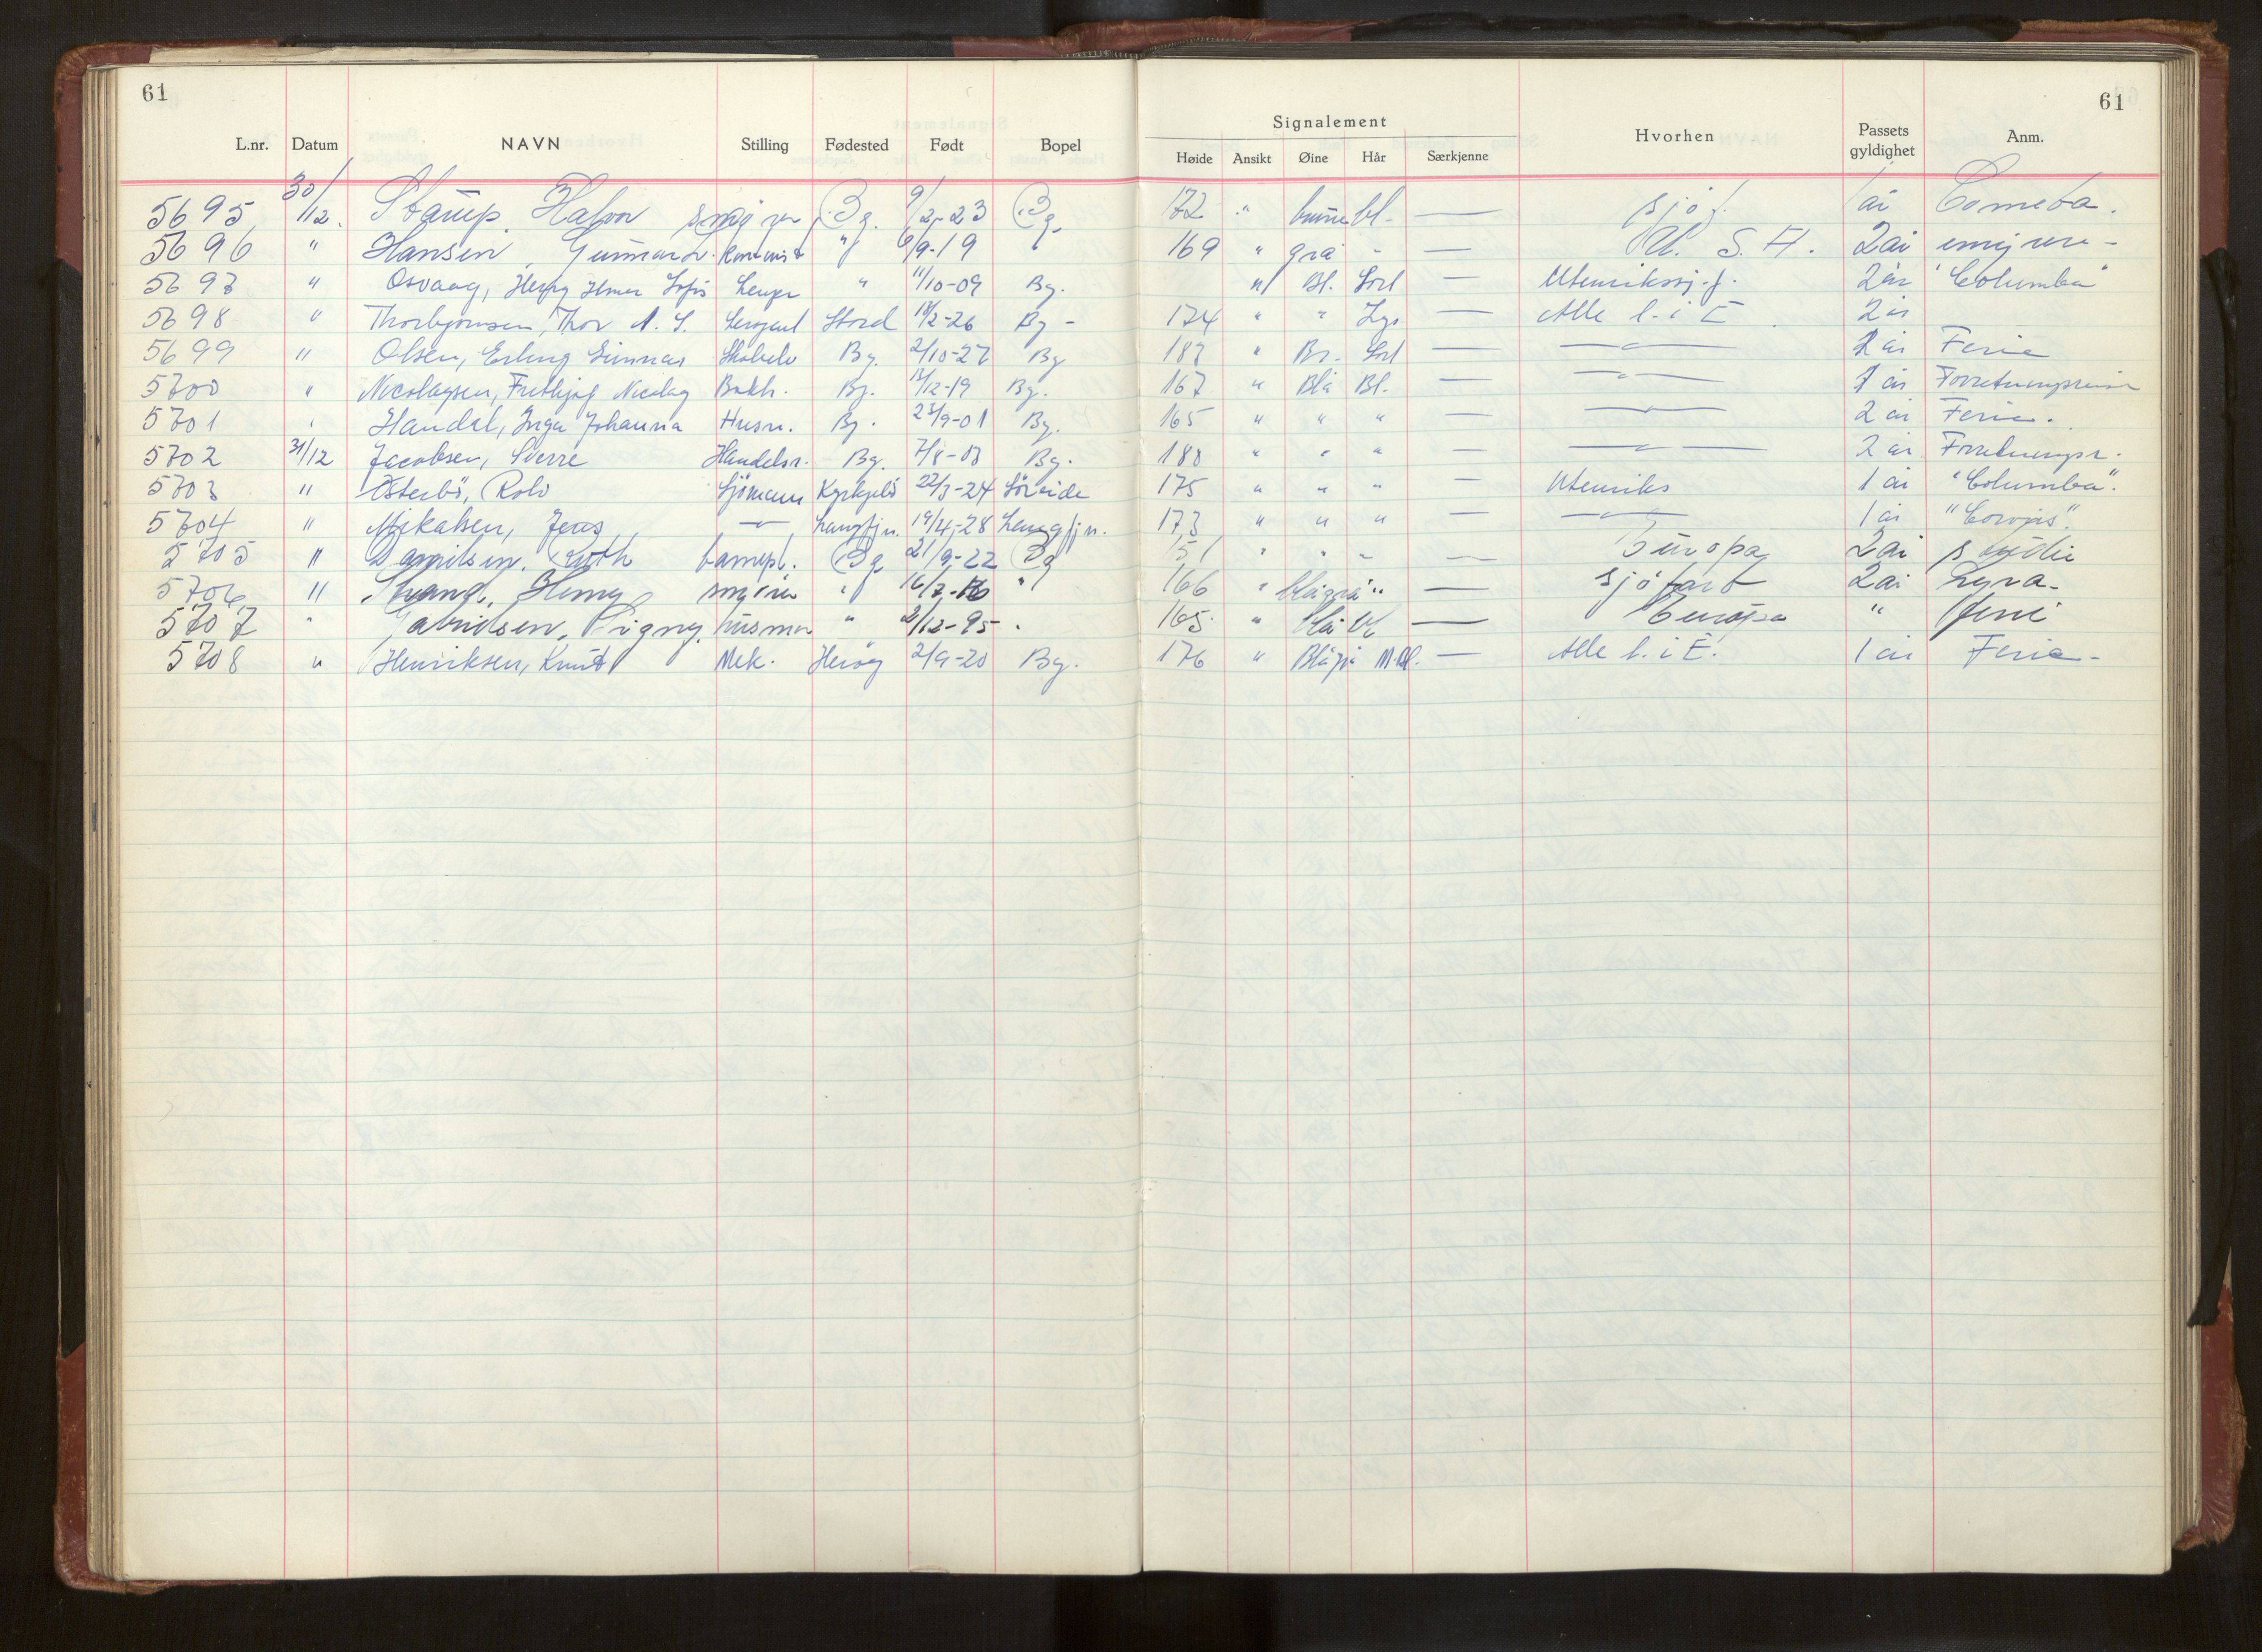 61
61
L.nr. Datum NAVN Stilling Fødested Født Bopel Signalement Høide Ansikt Øine Hår Særkjenne Hvorhen Passets gyldighet Anm.
5695 30/12. Halvor Bg. 9/2-23 Bg. 172 " bl. — sjøf. 1 år Cometa.
5696 " Hansen, " 6/9-19 169 " grå " — U. S. A. 2 år
5697 " Osvaag, " 11/10-09 Bg. " Bl. Sort — 2 år "Columba"
5698 " Thorbjørnsen, Thor A. S. Sersjant Stord 2-26 Bg - 174 " " Lys — Alle l. i E. 2 år
5699 " Olsen, Erling Bg. 2/10-27 Bg 187 " Br. Sort — —"— 2 år Ferie
5700 " Nicolaysen, Fridtjof Nicolay Bokh. Bg. 12-19 Bg. 167 " Blå Bl. — —"— 1 år Forretningsreise
5701 " Handal, Inga Johanna Husm. Bg. 23/9-01 Bg. 165 " " " — —"— 2 år Ferie.
5702 31/12 Jacobsen, Sverre Handelsr. Bg. 7/8-03 Bg. 180 " " " — —"— 2 år Forretningsr.
5703 " Österbö, Rolv Sjömann Kyrkjebö 22/3-24 Söreide 175 " " " — Utenriks 1 år "Columba".
5704 " Mikalsen, Jens —"— Langfjn. 19/4-28 Langfjn. 173 " " " — —"— 1 år "Corvus".
5705 " Danielsen, Ruth barnepl. Bg. 21/9-22 Bg 151 " " " — Europa 2 år studie
5706 " Strand, Henry " 16/7-16 " 166 " blågrå " — sjöfart 2 år Lyra.
5707 " Gabrielsen, Signy husmor " 2/12-95 " 165 " blå bl — Europa " ferie
5708 " Henriksen, Knut Mek. Heröy 2/9-20 Bg. 176 " Blågrå M.Bl. — Alle l. i E. 1 år Ferie.